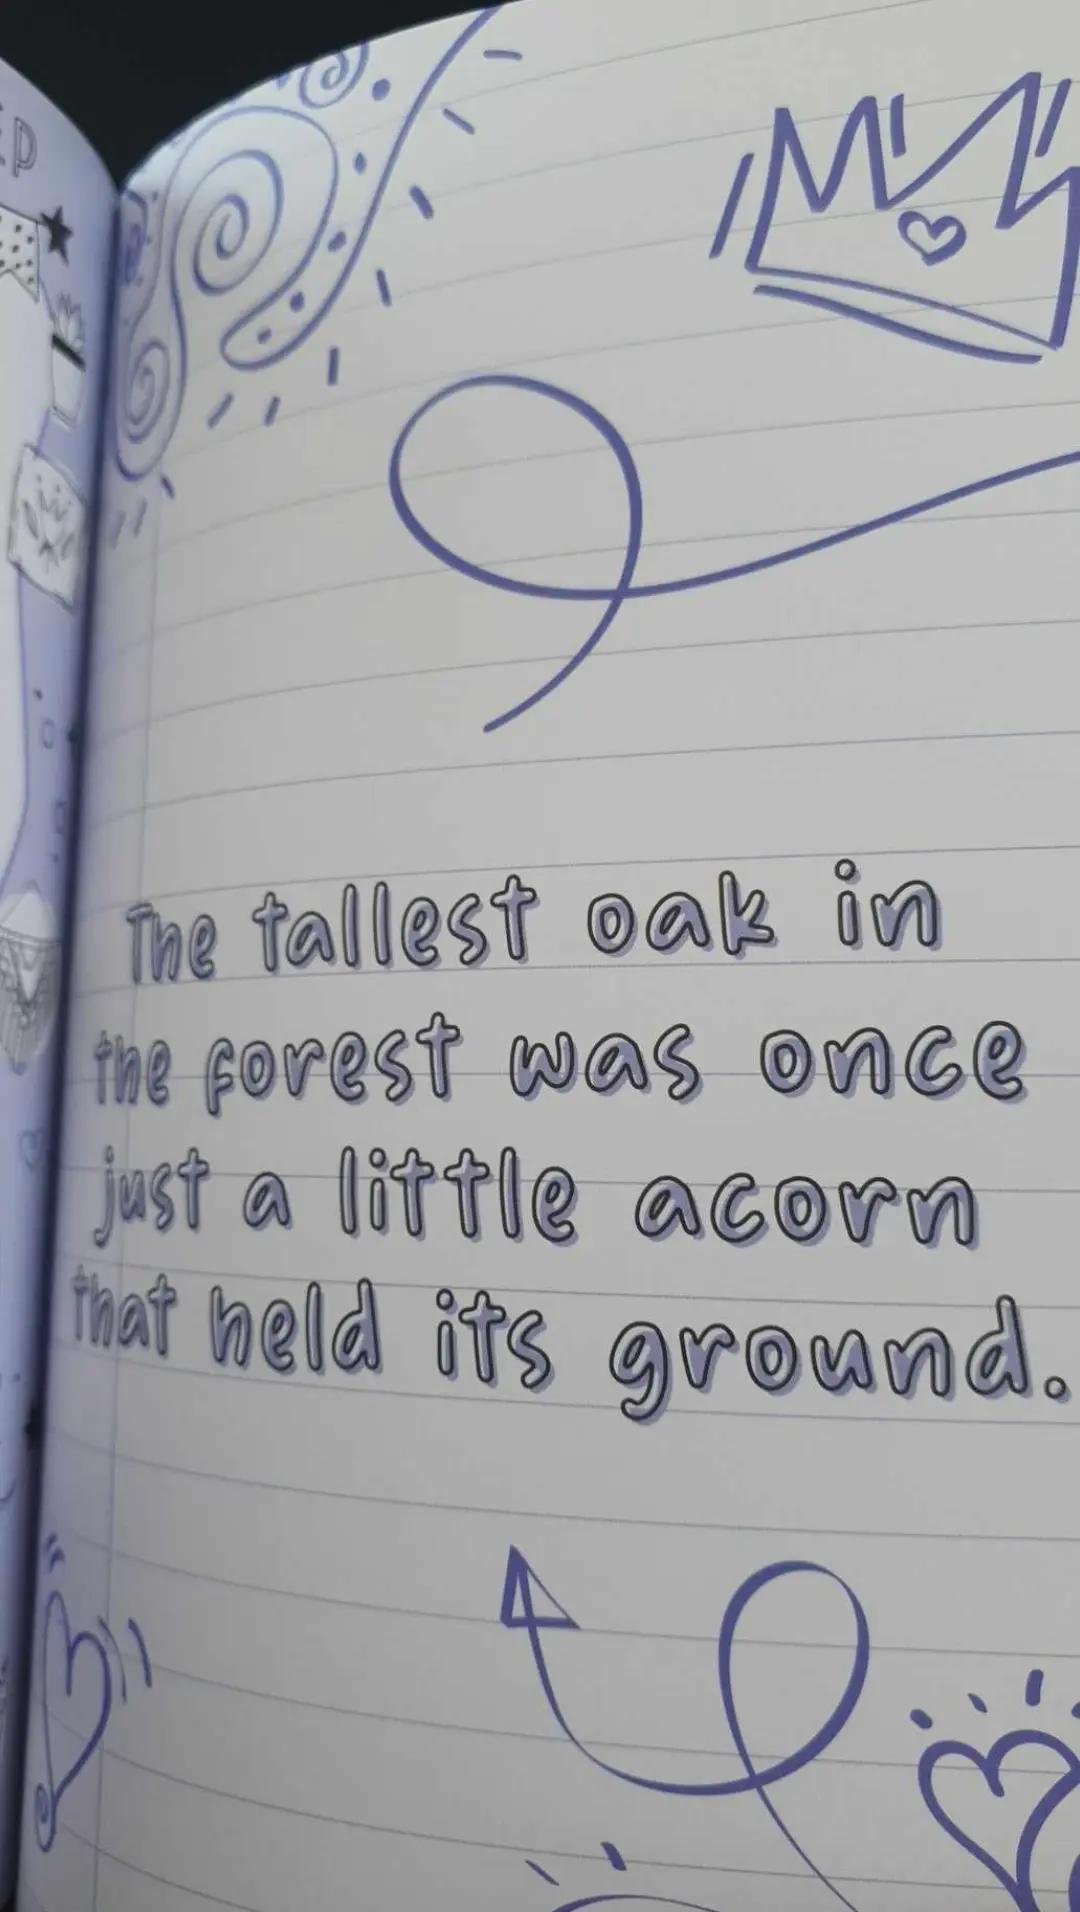 The tallest oak in
the forest was once
just a little acorn
that held its ground.